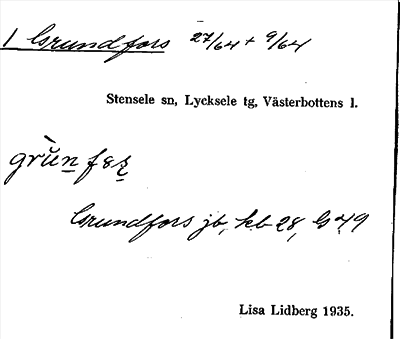 1 Grundfors 27/64 + 9/64
Stensele sn, Lycksele tg, Västerbottens l.
grùn fsr
Grundfors jb, kb 28, G 49
Lisa Lidberg 1935.